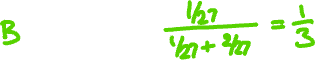 B (1/27)/(1/27 + 2/27) = 1/3